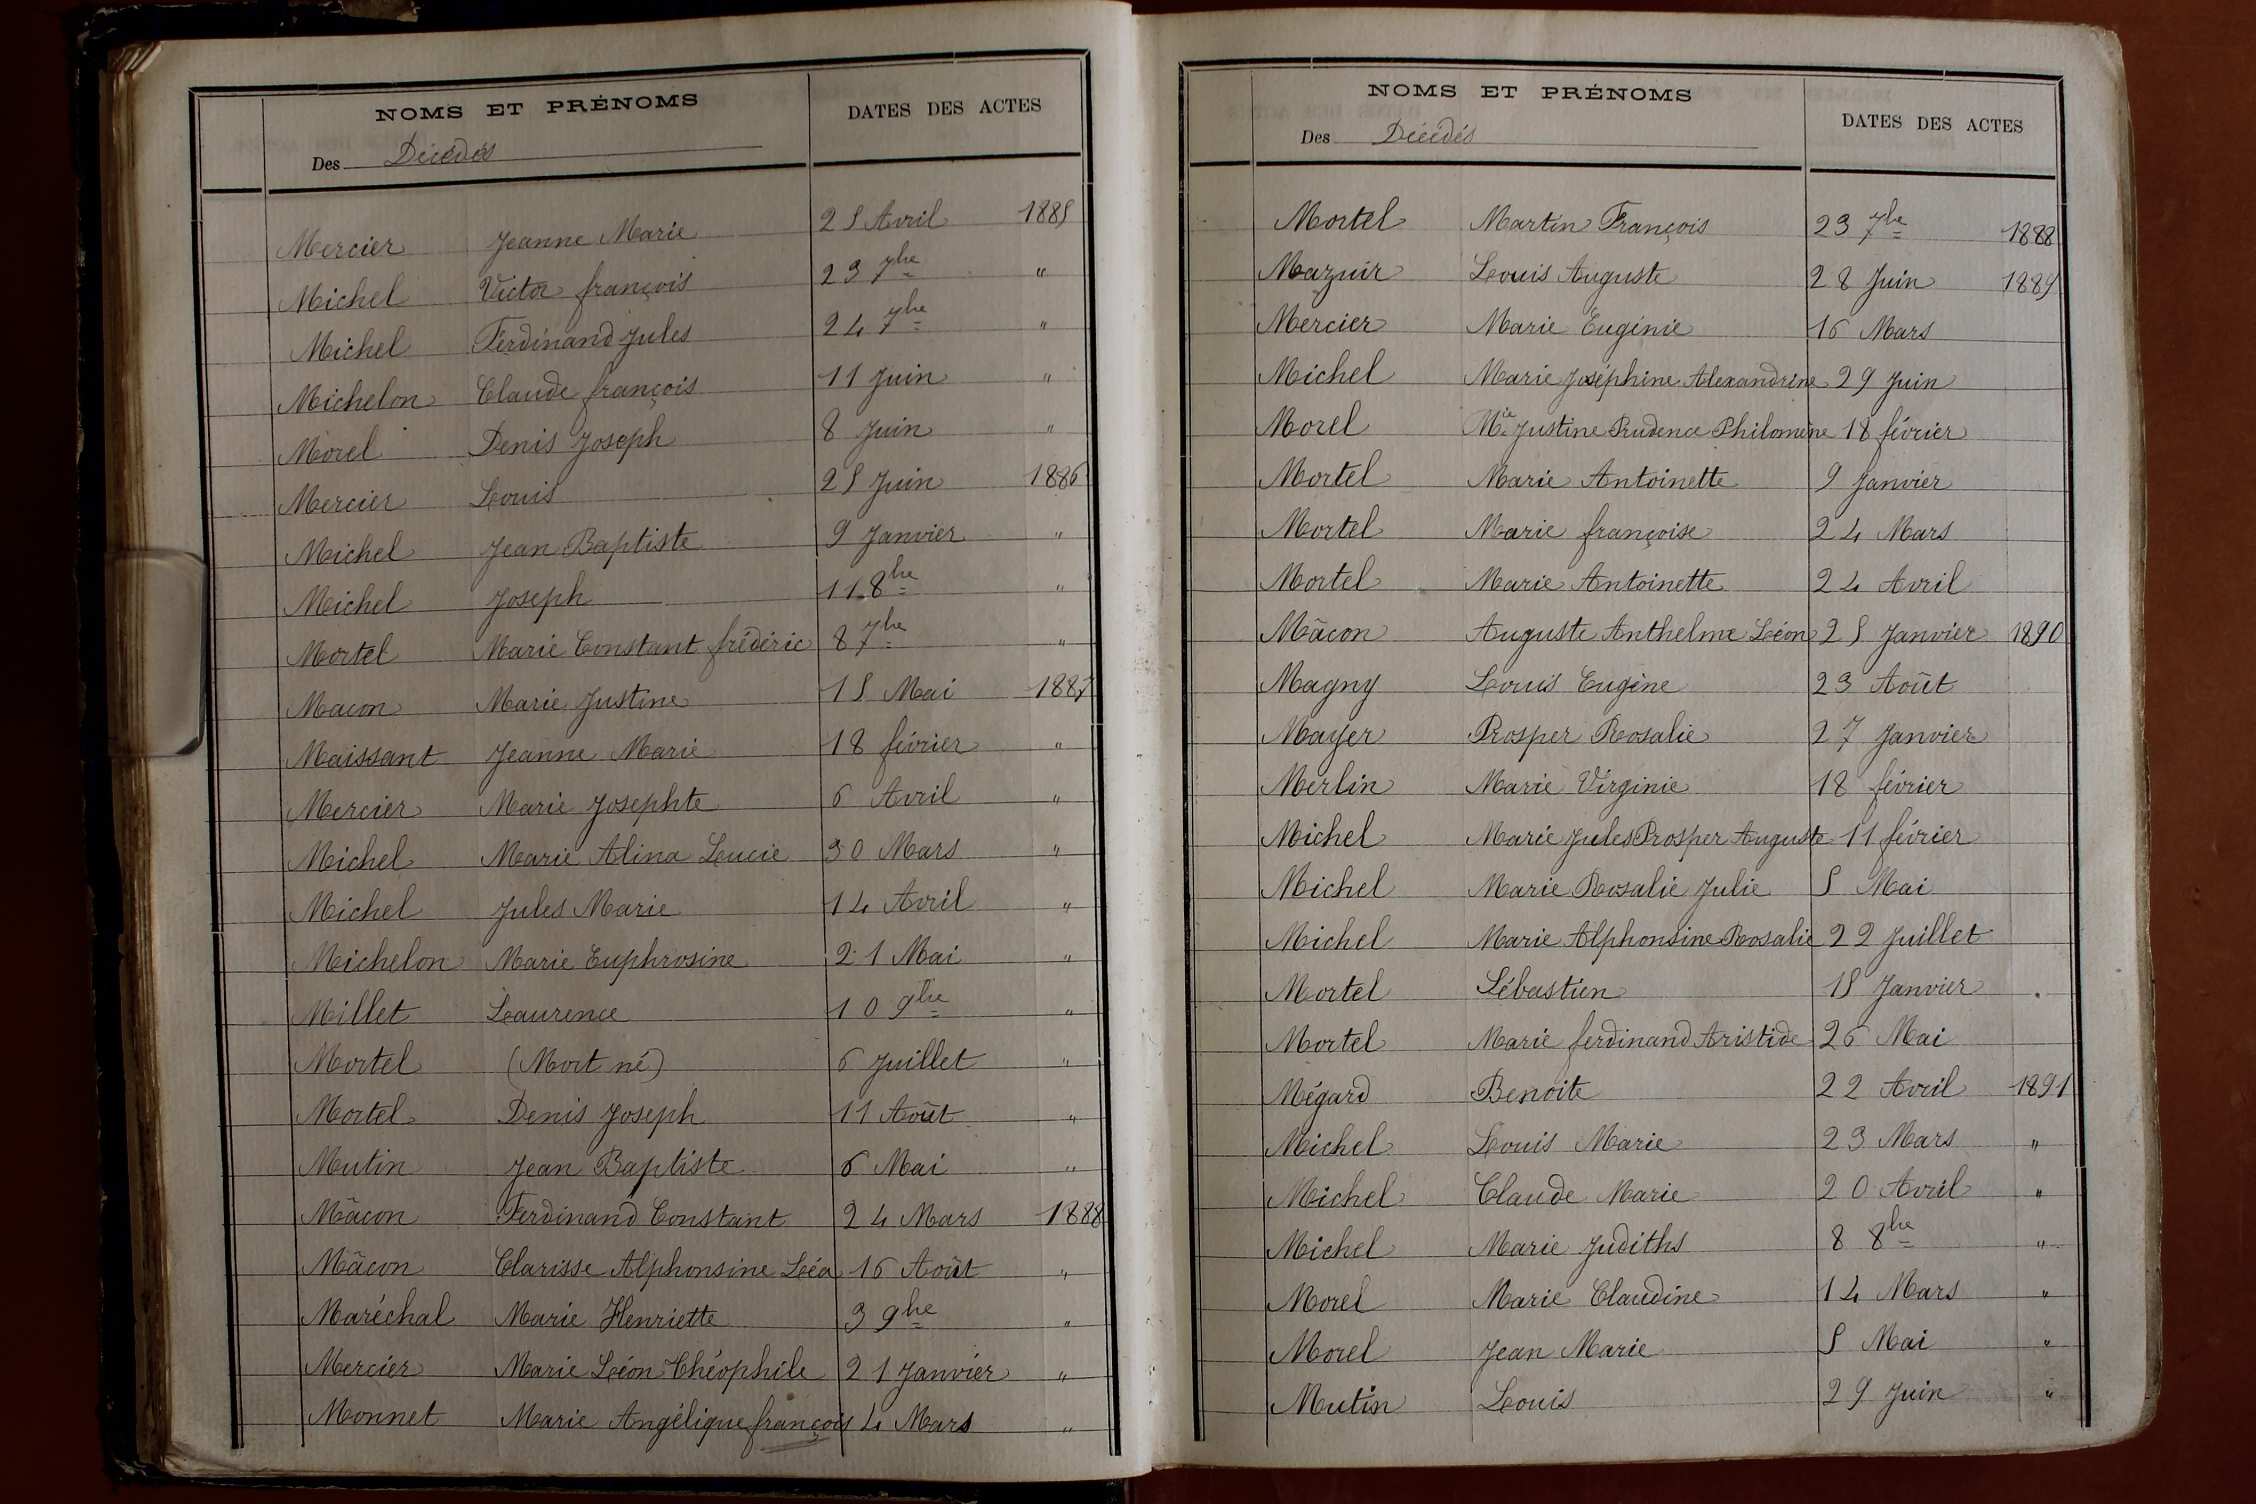 NOMS ET PRÉNOMS DATES DES ACTES
Des Décédés
Mercier Jeanne Marie 25 Avril 1885
Michel Victor françois 23 7bre "
Michel Ferdinand Jules 24 7bre "
Michelon Claude françois 11 Juin "
Morel Denis Joseph 8 Juin "
Mercier Louis 25 Juin 1886
Michel Jean Baptiste 9 Janvier "
Michel Joseph 11 8bre "
Mortel Marie Constant frédéric 8 7bre "
Macon Marie Justine 15 Mai 1887
Maissant Jeanne Marie 18 février "
Mercier Marie Josephte 6 Avril "
Michel Marie Alina Lucie 30 Mars "
Michel Jules Marie 14 Avril "
Michelon Marie Euphrosine 21 Mai "
Millet Laurence 10 9bre "
Mortel (Mort né) 6 Juillet "
Mortel Denis Joseph 11 Août "
Mutin Jean Baptiste 6 Mai "
Mâcon Ferdinand Constant 24 Mars 1888
Mâcon Clarisse Alphonsine Léa 16 Août "
Maréchal Marie Henriette 3 9bre "
Mercier Marie Léon Théophile 21 Janvier "
Monnet Marie Angélique françois 4 Mars "
NOMS ET PRÉNOMS DATES DES ACTES
Des Décédés
Mortel Martin François 23 7bre 1888
Mazuir Louis Auguste 28 Juin 1889
Mercier Marie Eugénie 16 Mars
Michel Marie Joséphine Alexandrine 29 Juin
Morel Mie Justine Prudence Philomène 18 février
Mortel Marie Antoinette 9 Janvier
Mortel Marie françoise 24 Mars
Mortel Marie Antoinette 24 Avril
Mâcon Auguste Anthelme Léon 25 Janvier 1890
Magny Louis Eugène 23 Août
Mayer Prosper Rosalie 27 Janvier
Merlin Marie Virginie 18 février
Michel Marie Jules Prosper Auguste 11 février
Michel Marie Rosalie Julie 5 Mai
Michel Marie Alphonsine Rosalie 22 Juillet
Mortel Sébastien 15 Janvier
Mortel Marie ferdinand Aristide 26 Mai
Mégard Benoite 22 Avril 1891
Michel Louis Marie 23 Mars "
Michel Claude Marie 20 Avril "
Michel Marie Judiths 8 8bre "
Morel Marie Claudine 14 Mars "
Morel Jean Marie 5 Mai "
Mutin Louis 29 Juin "